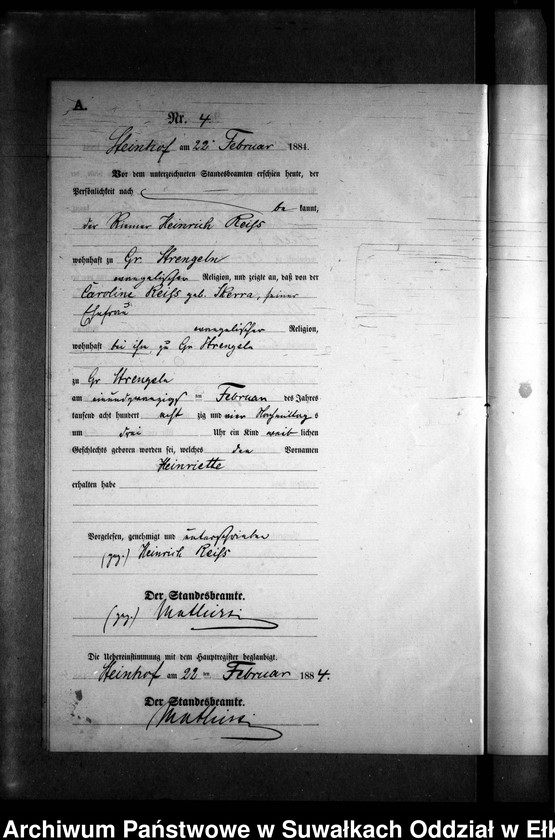 A.
Nr. 4
Steinhof am 22ⁿ Februar 1884.
Vor dem unterzeichneten Standesbeamten erschien heute, der
Persönlichkeit nach
be kannt,
der Heinrich Reiss
wohnhaft zu Gr Strengeln
evangelischer Religion, und zeigte an, daß von der
Caroline Reiss geb. Skerra, seiner
Ehefrau
evangelischer Religion,
wohnhaft bei ihm zu Gr Strengeln
zu Gr Strengeln
am ten Februar des Jahres
tausend acht hundert acht zig und vier Nachmittag s
um drei Uhr ein Kind weib lichen
Geschlechts geboren worden sei, welches den Vornamen
Heinriette
erhalten habe
Vorgelesen, genehmigt und unterschrieben
(gez.) Heinrich Reiss
Der Standesbeamte.
(gez.)
Die Uebereinstimmung mit dem Hauptregister beglaubigt.
Steinhof am 22 ten Februar 1884.
Der Standesbeamte.
Archiwum Państwowe w Suwałkach Oddział w Ełk